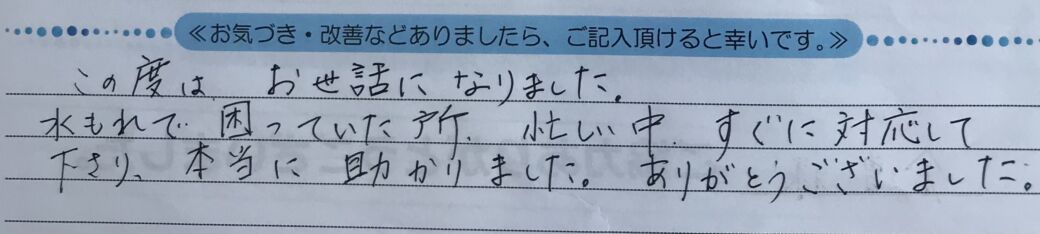 ≪お気づき・改善などありましたら、ご記入頂けると幸いです。≫
この度は お世話になりました。
水もれで困っていた所、忙しい中、すぐに対応して
下さり、本当に助かりました。ありがとうございました。